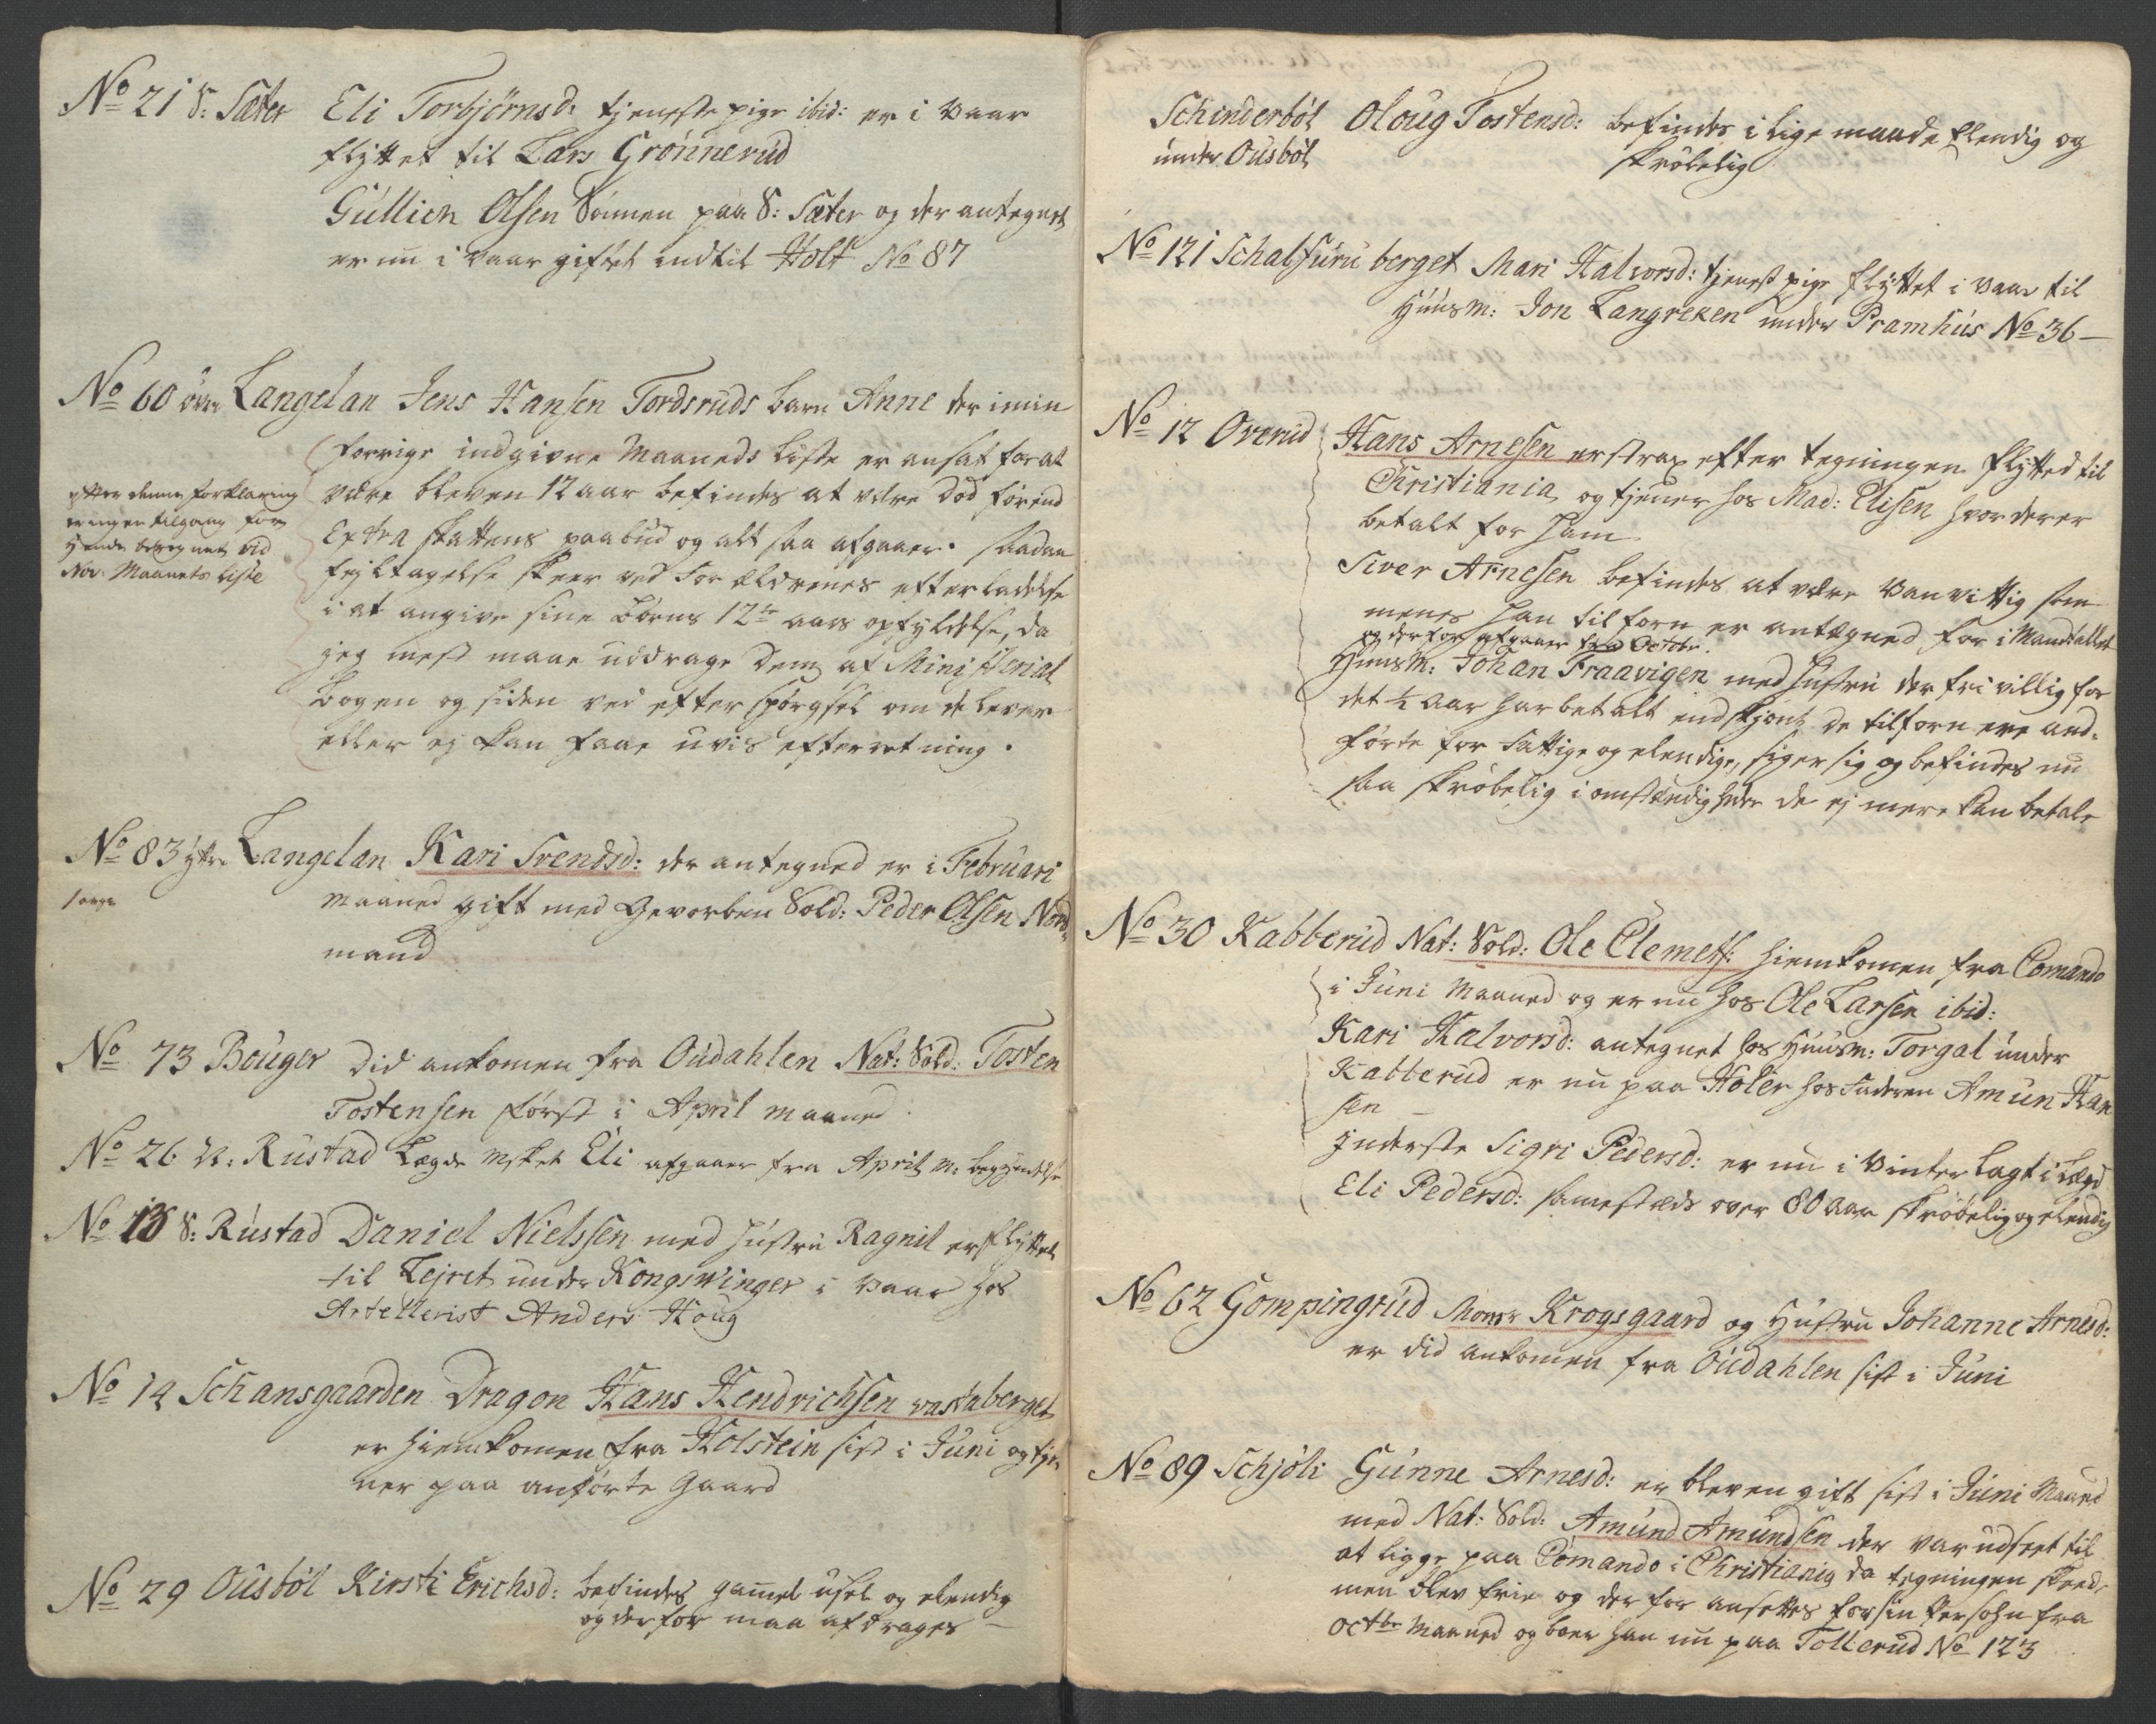 No 21 S: Sæter Eli Torbjörnsd: tjenestepige ibid: er i Vaar
flÿttet til Lars Grönnerud
Gullich Olsen Sönnen paa S: Sæter og der antegnet
er nu i Vaar giftet indtil Holt No 87
No 60 övre Langelan Jens Hansen Tordsruds barn Anne der i min
forrige indgivne Maaneds Liste er ansat for at
være bleven 12 aar befindes at være död förend
Extra skattens paabud og alt saa afgaaer. saadan
fejltagelse skeer ved Forældrenes efterladelse
i at angive sine Börns 12te aars opfyldelse, da
jeg mest maae uddrage dem af Ministerial
bogen og siden ved efterspörgsel om de lever
eller ej kan faae uvis efterretning.
efter denne forklaring
er ingen tilgang for
hende beregnet ved
Nov: Maaneds liste
No 83 ÿtre Langelan Kari Svendsd: der antegned er i Februari
Maaned gift med Gevorben Sold: Peder Olsen Nord-
mand
No 73 Bouger did ankomen fra Oudahlen Nat: Sold: Tosten
Tostensen först i April Maaned.
No 26 N: Rustad Lægde Eli afgaaer fra April M: begyndelse
No 13 S: Rustad Daniel Nielssen med Hustru Ragnil er flÿttet
til Lejret under Kongswinger i Vaar hos
Artellerist Anders Houg
No 14 Schansgaarden Dragon Hans Hendrichsen vastaberget
er hiemkomen fra Holstein sist i Juni og tje-
ner paa anförte Gaard
No 29 Ousböl Kirsti Erichsd: befindes gamel usel og elendig
og derfor maa afdrages —
Schinderböl Oloug Tostensd: befindes i lige maade Elendig og
under Ousböl skröbelig
No 121 Schalfuruberget Mari Halvorsd: tjenestpige flÿttet i Vaar til
Huusm: Jon Langreken under Pramhus No 36 —
No 12 Overud Hans Arnesen er strax efter tegningen flÿtted til
Christiania og tjener hos Mad: Elisen hvor der er
betalt for ham
Siver Arnesen befindes at være Vanvittig som
menes han tilforn er antegned for i Mandtallet
og derfor afgaaer fra Octobr.
Huusm: Johan Fraavigen med Hustru der frivillig for
det ½ Aar har betalt endskjönt de tilforn ere and-
förte for fattige og elendige, siger sig og befindes nu
saa skröbelig i omstændigheder de ej mere kan betale
No 30 Kabberud Nat: Sold: Ole Clemets: hiemkomen fra Comando
i Juni Maaned og er nu hos Ole Larsen ibid:
Kari Halvorsd: antegnet hos Huusm: Torgal under
Kabberud er nu paa Holer hos Faderen Amun Han
sen —
Inderste Sigri Pedersd: er nu i Vinter lagt i Lægd
Eli Pedersd: samestæds over 80 Aar skröbelig og elendig
No 62 Gompingrud Monsr Krogsgaard og Hustru Johanne Arnesd:
er did ankomen fra Oudahlen sist i Juni
No 89 Schjöli Gunne Arnesd: er bleven gift sist i Juni Maaned
med Nat: Sold: Amund Amundsen der var udseet til
at ligge paa Comando i Christiania da tegningen skeede
men blev frie og der for ansettes for sin Persohn fra
Octbr Maaned og boer han nu paa Tollerud No 123